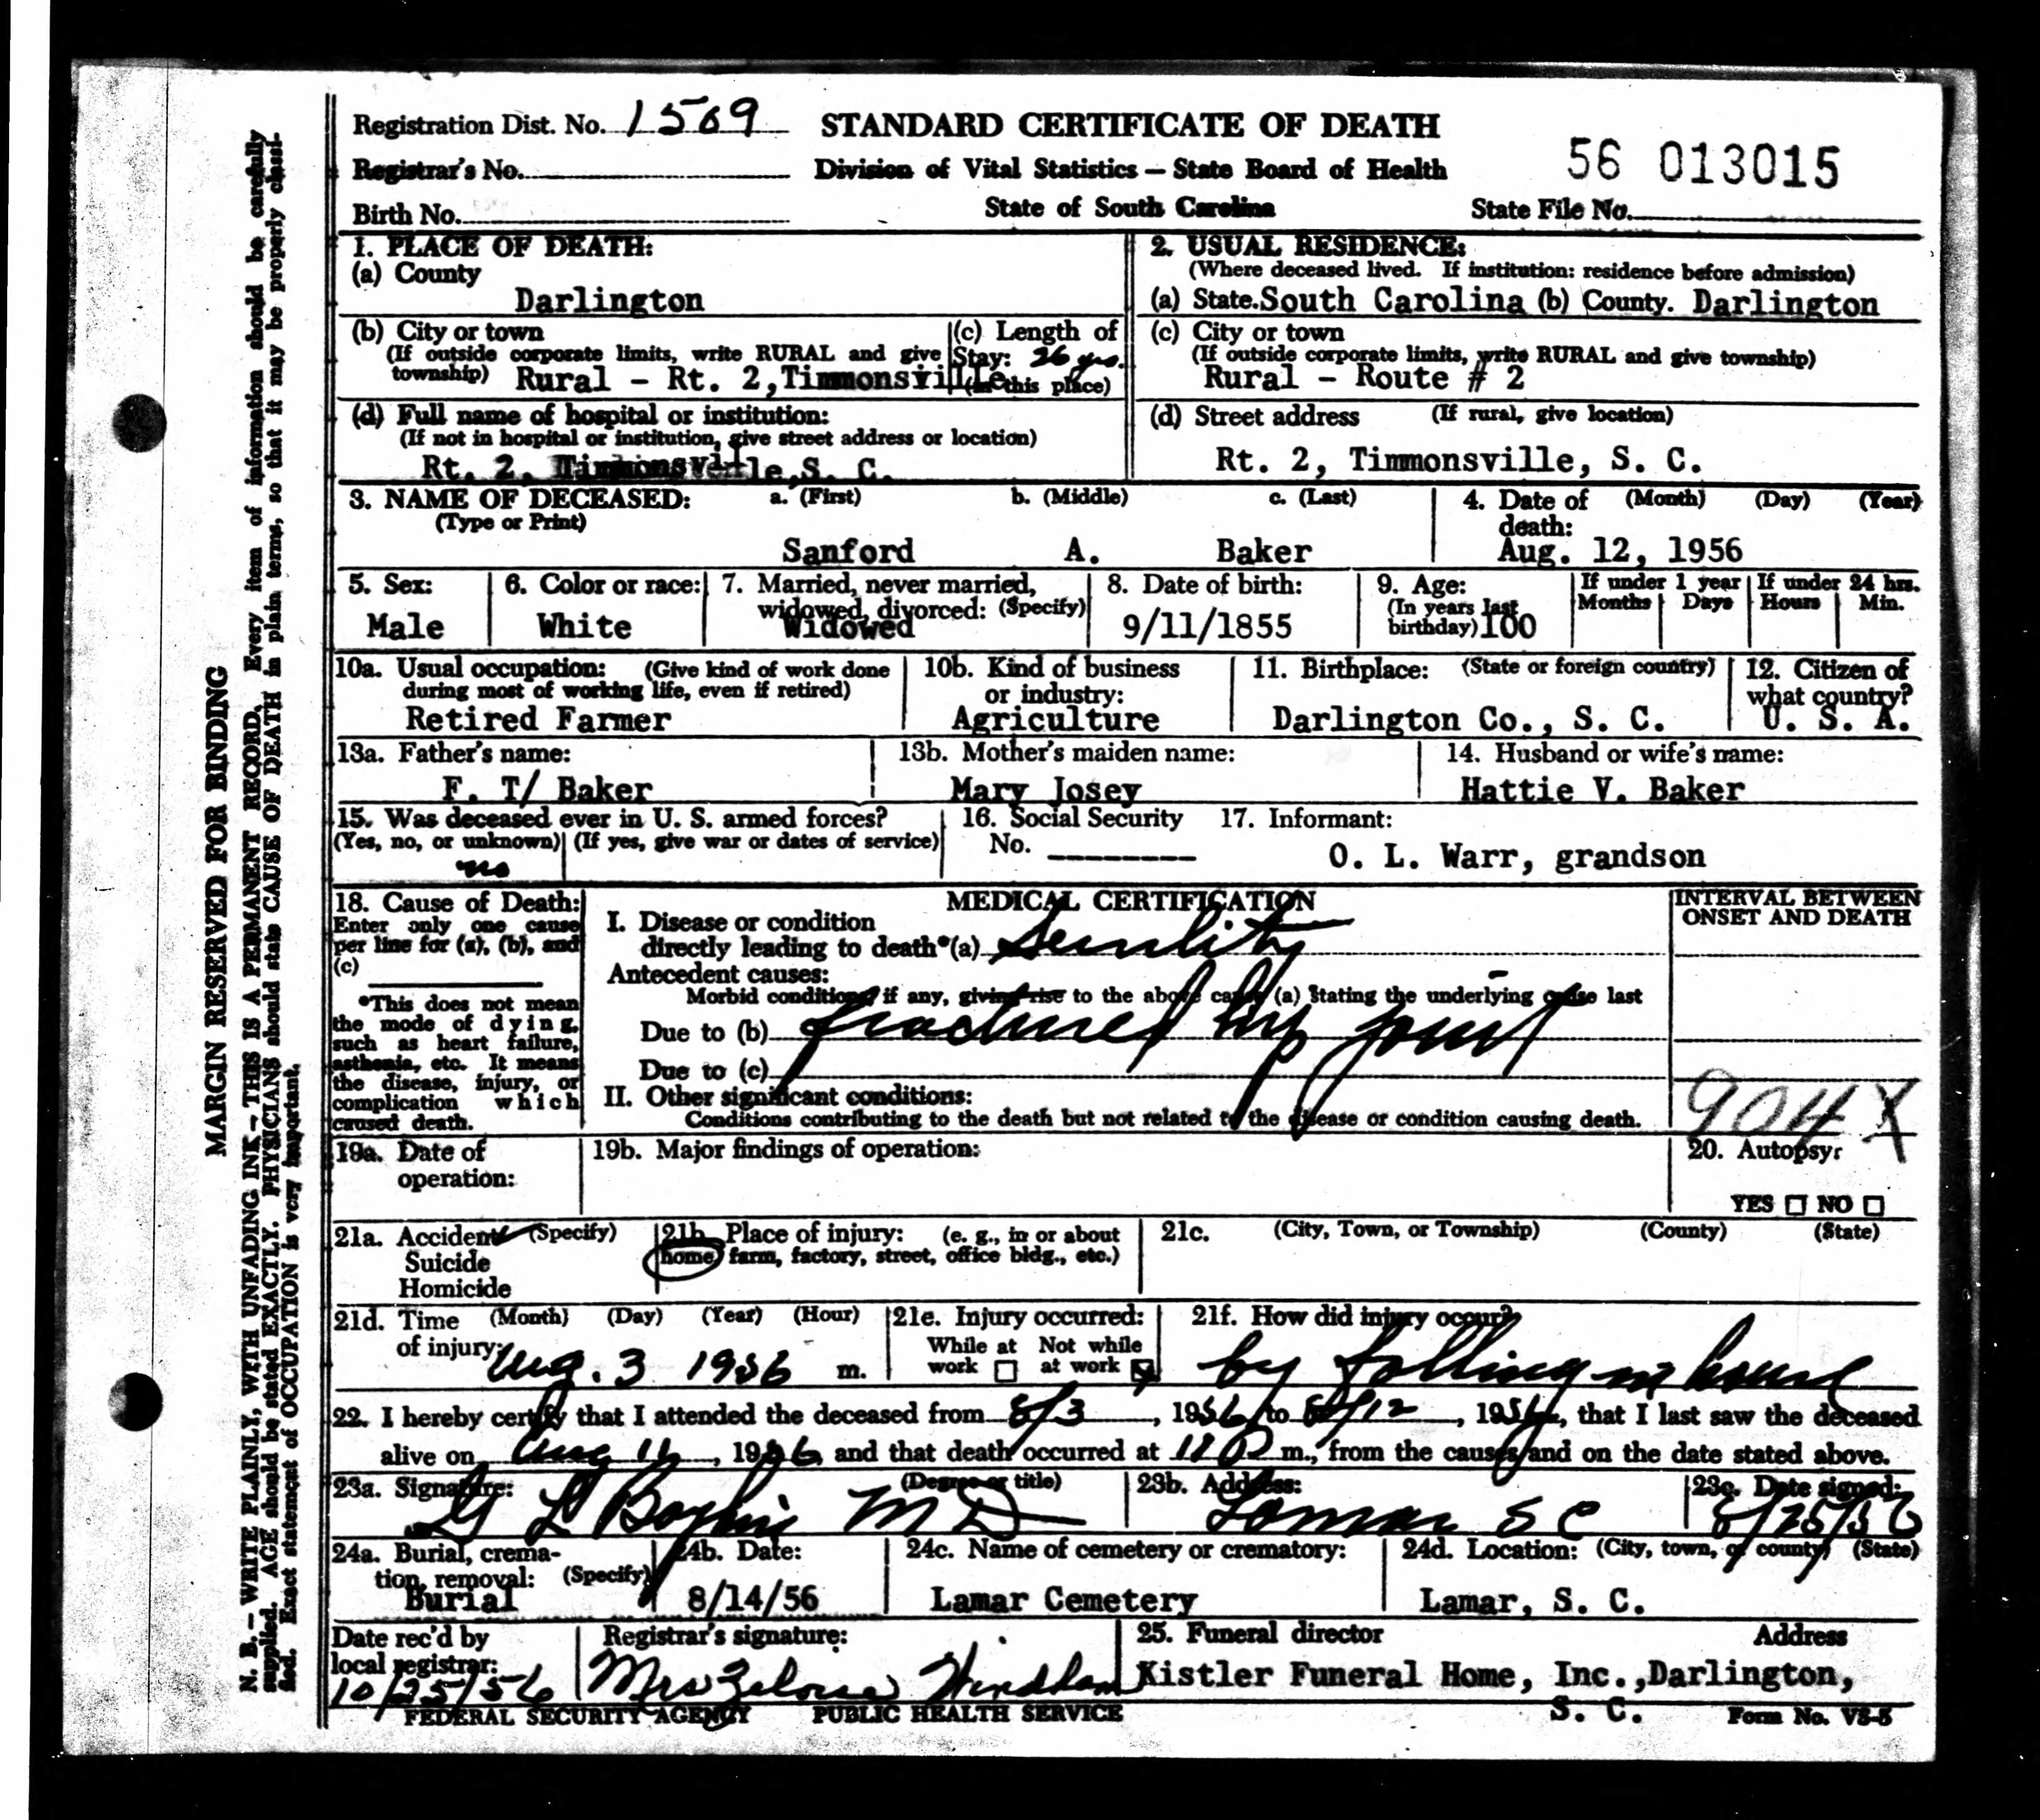 Registration Dist. No. 1569 STANDARD CERTIFICATE OF DEATH
56 013015
Registrar's No. Division of Vital Statistics — State Board of Health
Birth No. State of South Carolina State File No.
MARGIN RESERVED FOR BINDING
N. B.—WRITE PLAINLY, WITH UNFADING INK—THIS IS A PERMANENT RECORD. Every item of information should be carefully
supplied. AGE should be stated EXACTLY. PHYSICIANS should state CAUSE OF DEATH in plain terms, so that it may be properly classi-
fied. Exact statement of OCCUPATION is very important.
1. PLACE OF DEATH:
(a) County
Darlington
(b) City or town
(If outside corporate limits, write RURAL and give
township) Rural - Rt. 2,Timmonsville
(c) Length of
Stay: 26 yrs.
(in this place)
(d) Full name of hospital or institution:
(If not in hospital or institution, give street address or location)
Rt. 2, Timmonsville,S. C.
2. USUAL RESIDENCE:
(Where deceased lived. If institution: residence before admission)
(a) State.South Carolina (b) County. Darlington
(c) City or town
(If outside corporate limits, write RURAL and give township)
Rural - Route # 2
(d) Street address (If rural, give location)
Rt. 2, Timmonsville, S. C.
3. NAME OF DECEASED: a. (First) b. (Middle) c. (Last)
(Type or Print)
Sanford A. Baker
4. Date of (Month) (Day) (Year)
death:
Aug. 12, 1956
5. Sex:
Male
6. Color or race:
White
7. Married, never married,
widowed, divorced: (Specify)
Widowed
8. Date of birth:
9/11/1855
9. Age:
(In years last
birthday) 100
If under 1 year
Months Days
If under 24 hrs.
Hours Min.
10a. Usual occupation: (Give kind of work done
during most of working life, even if retired)
Retired Farmer
10b. Kind of business
or industry:
Agriculture
11. Birthplace: (State or foreign country)
Darlington Co., S. C.
12. Citizen of
what country?
U. S. A.
13a. Father's name:
F. T/ Baker
13b. Mother's maiden name:
Mary Josey
14. Husband or wife's name:
Hattie V. Baker
15. Was deceased ever in U. S. armed forces?
(Yes, no, or unknown) (If yes, give war or dates of service)
no
16. Social Security
No.
17. Informant:
O. L. Warr, grandson
18. Cause of Death:
Enter only one cause
per line for (a), (b), and
(c)
*This does not mean
the mode of dying,
such as heart failure,
asthenia, etc. It means
the disease, injury, or
complication which
caused death.
MEDICAL CERTIFICATION
I. Disease or condition
directly leading to death*(a) Senility
Antecedent causes:
Morbid conditions, if any, giving rise to the above cause (a) stating the underlying cause last
Due to (b) fractured hip joint
Due to (c)
II. Other significant conditions:
Conditions contributing to the death but not related to the disease or condition causing death.
INTERVAL BETWEEN
ONSET AND DEATH
904 X
19a. Date of
operation:
19b. Major findings of operation:
20. Autopsy:
YES NO
21a. Accident (Specify)
Suicide
Homicide
21b. Place of injury: (e. g., in or about
home, farm, factory, street, office bldg., etc.)
21c. (City, Town, or Township) (County) (State)
21d. Time (Month) (Day) (Year) (Hour)
of injury: Aug. 3 1956 m.
21e. Injury occurred:
While at Not while
work at work
21f. How did injury occur?
by falling in house
22. I hereby certify that I attended the deceased from 8/3, 1956, to 8/12, 1956, that I last saw the deceased
alive on Aug 11, 1956, and that death occurred at m., from the causes and on the date stated above.
23a. Signature: (Degree or title)
G L M D
23b. Address:
Lamar S C
23c. Date signed:
8/25/56
24a. Burial, crema-
tion, removal: (Specify)
Burial
24b. Date:
8/14/56
24c. Name of cemetery or crematory:
Lamar Cemetery
24d. Location: (City, town, or county) (State)
Lamar, S. C.
Date rec'd by
local registrar:
10/25/56
Registrar's signature:
Mrs Windham
25. Funeral director Address
Kistler Funeral Home, Inc.,Darlington,
S. C.
FEDERAL SECURITY AGENCY PUBLIC HEALTH SERVICE
Form No. VS-5